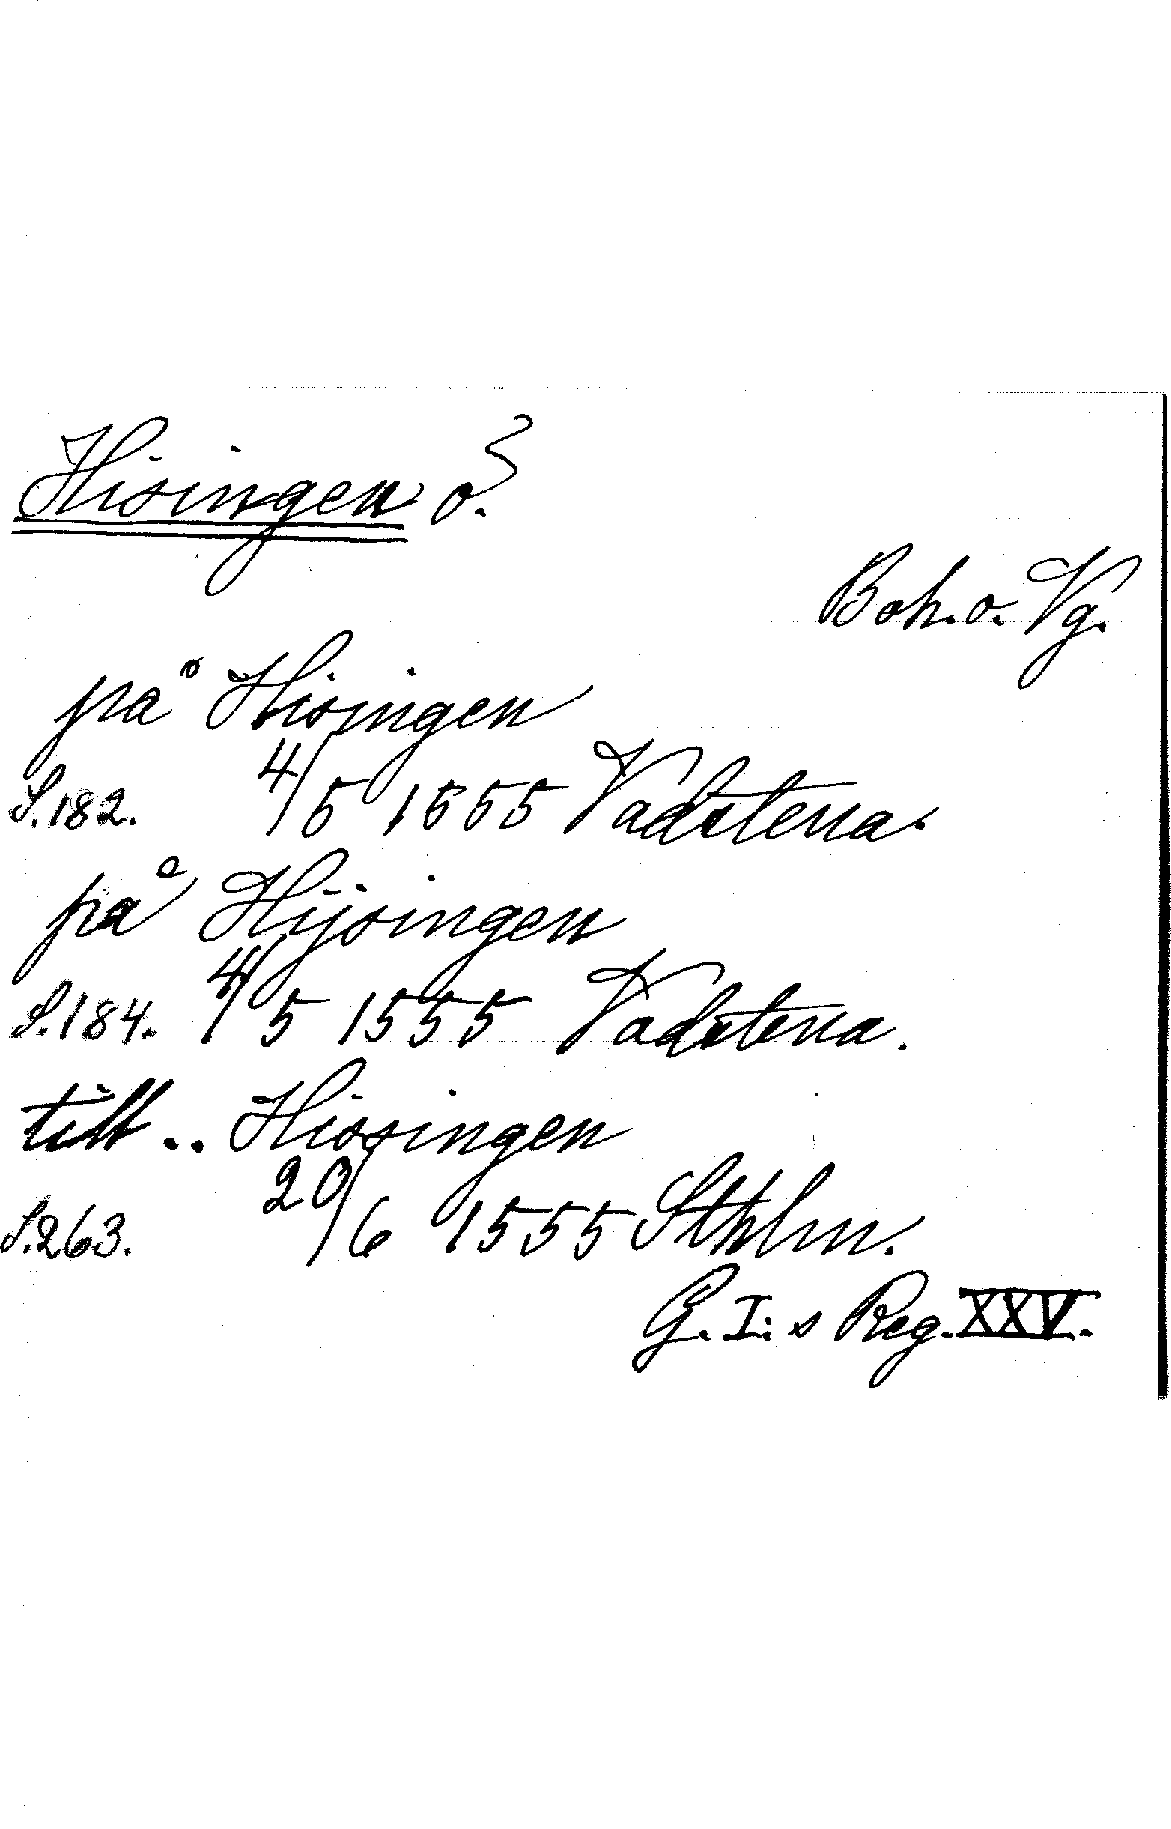 Hisingen ö.
Boh. o. Vg.
på Hisingen
S. 182. 4/5 1555 Vadstena.
på Hijsingen
S. 184. 4/5 1555 Vadstena.
till .. Hissingen
S. 263. 20/6 1555 Sthlm.
G. I:s Reg. XXV.